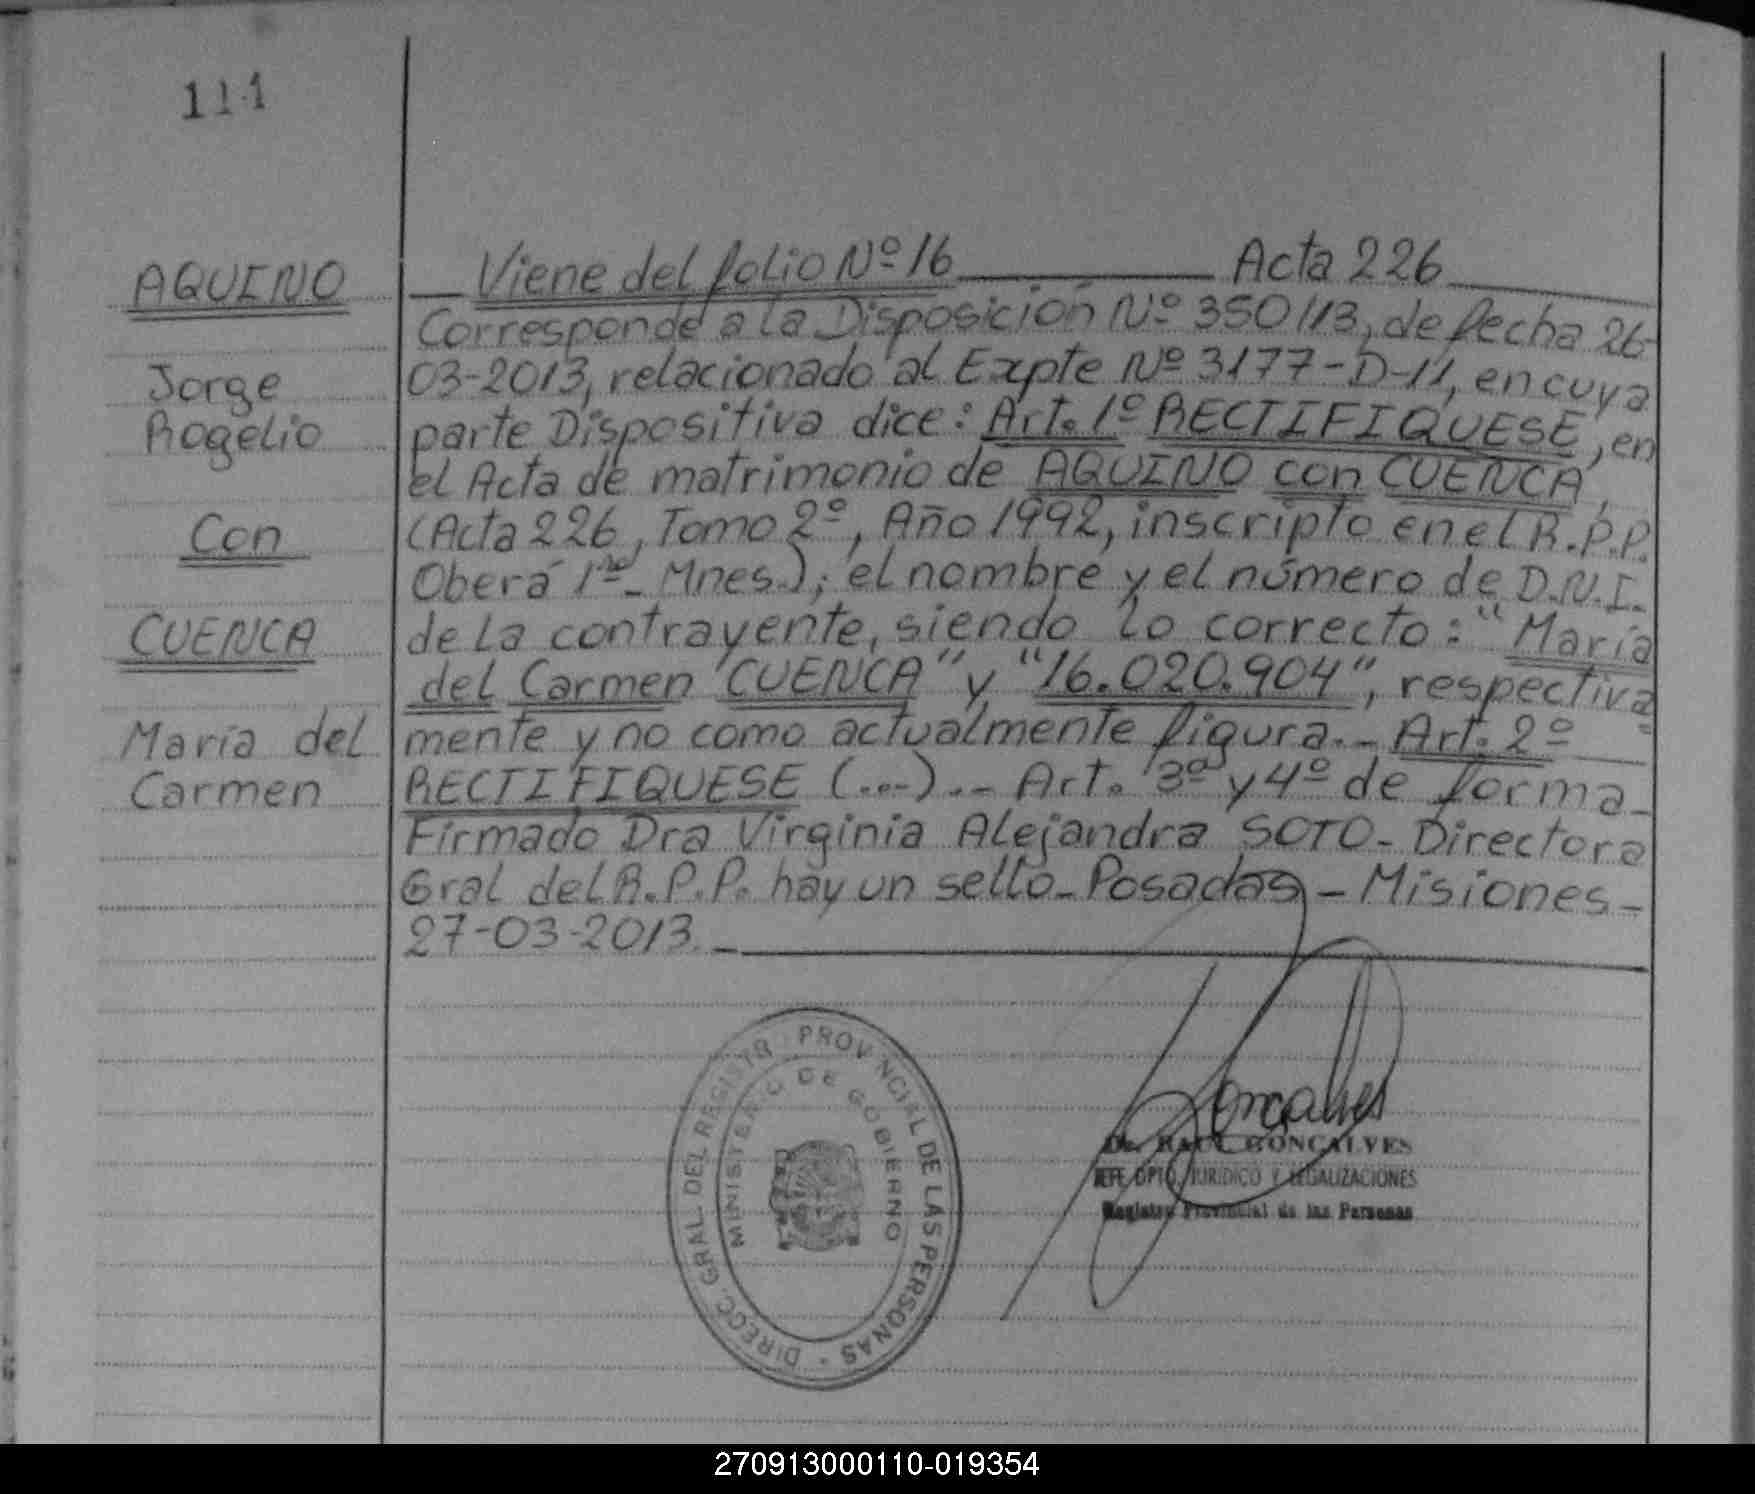 111
AQUINO
Jorge
Rogelio
Con
CUENCA
María del
Carmen
Viene del folio Nº 16 Acta 226
Corresponde a la Disposición Nº 350/13, de fecha 26-
03-2013, relacionado al Expte Nº 3177-D-11, en cuya
parte Dispositiva dice: Art. 1º RECTIFIQUESE, en
el Acta de matrimonio de AQUINO con CUENCA,
(Acta 226, Tomo 2º, Año 1992, inscripto en el R.P.P.
Oberá 1ra - Mnes.); el nombre y el número de D.N.I.
de la contrayente, siendo lo correcto: "María
del Carmen CUENCA" y "16.020.904", respectiva
mente y no como actualmente figura.- Art. 2º
RECTIFIQUESE (...).- Art. 3º y 4º de forma-
Firmado Dra Virginia Alejandra SOTO - Directora
Gral del R.P.P. hay un sello - Posadas - Misiones -
27-03-2013.-
DIRECC. GRAL. DEL REGISTR. PROVINCIAL DE LAS PERSONAS
MINISTERIO DE GOBIERNO
Goncalves
Dr. RAUL GONÇALVES
JEFE DPTO. JURIDICO Y LEGALIZACIONES
Registro Provincial de las Personas
270913000110-019354